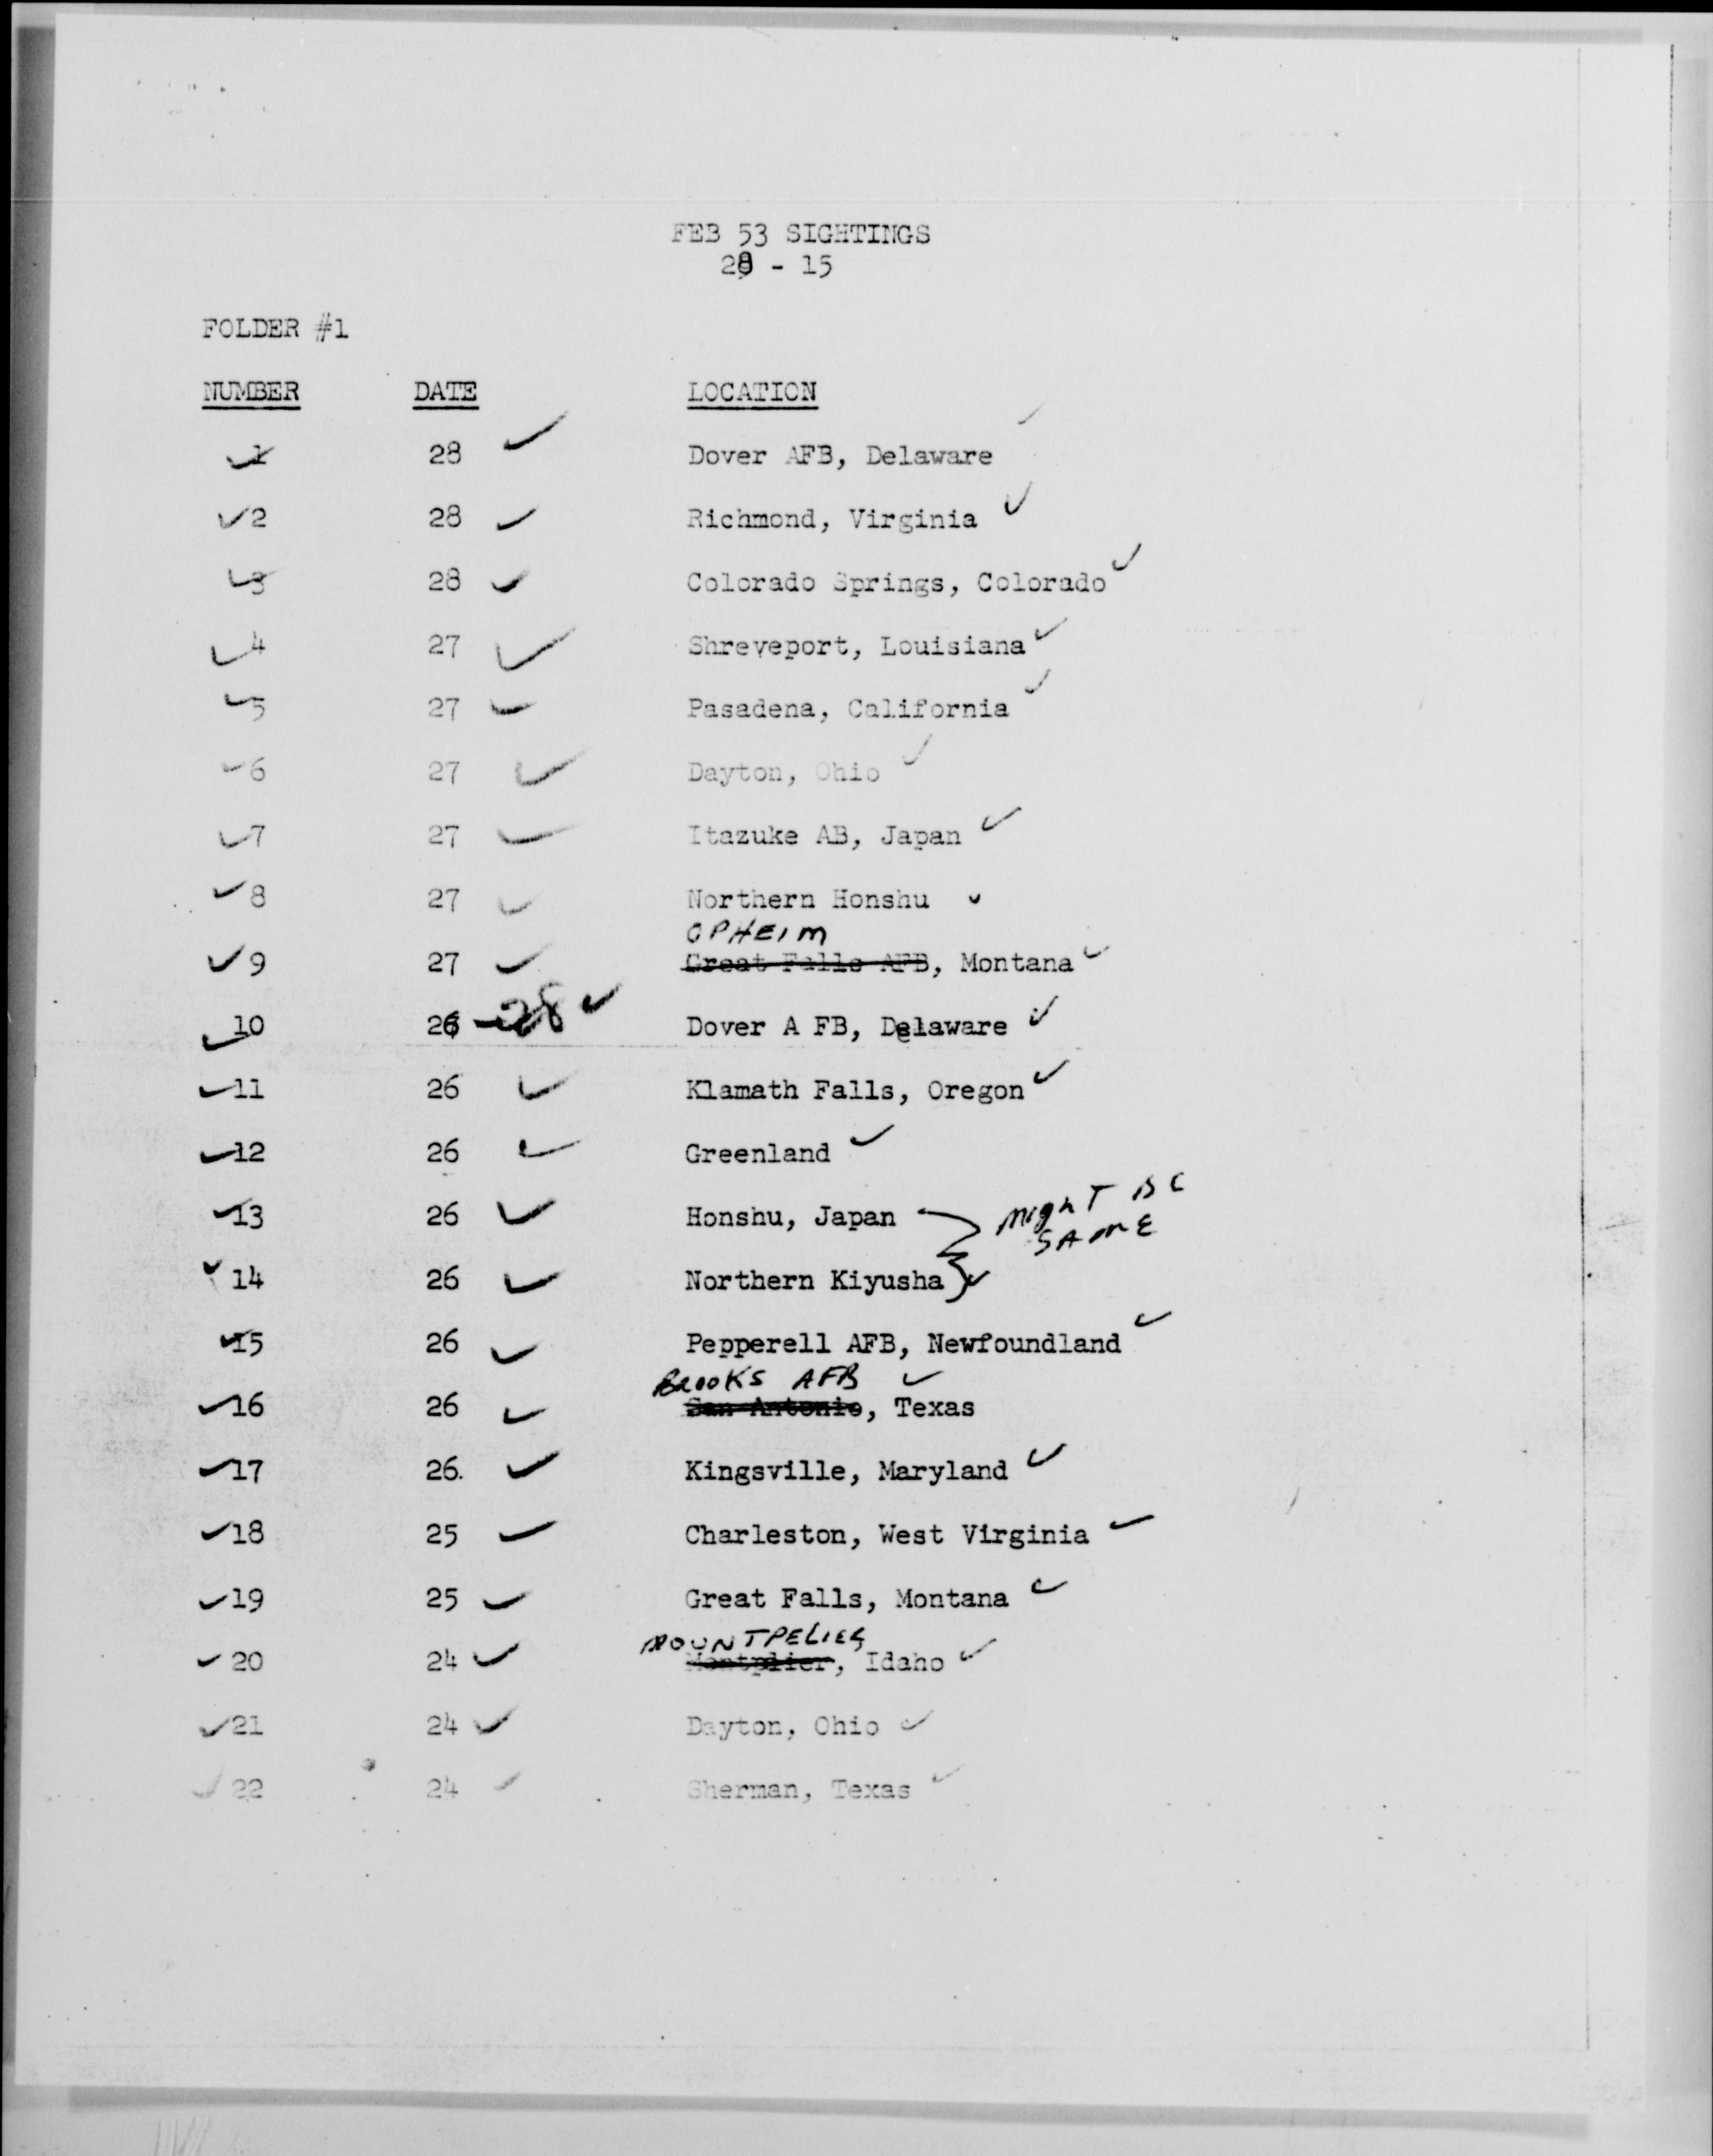 FEB 53 SIGHTINGS
28 - 15
FOLDER #1
NUMBER DATE LOCATION
1 28 Dover AFB, Delaware
2 28 Richmond, Virginia
3 28 Colorado Springs, Colorado
4 27 Shreveport, Louisiana
5 27 Pasadena, California
6 27 Dayton, Ohio
7 27 Itazuke AB, Japan
8 27 Northern Honshu
OPHEIM
9 27 Great Falls AFB, Montana
10 26 - 28 Dover A FB, Delaware
11 26 Klamath Falls, Oregon
12 26 Greenland
13 26 Honshu, Japan MIGHT BE
SAME
14 26 Northern Kiyusha
15 26 Pepperell AFB, Newfoundland
BROOKS AFB
16 26 San Antonio, Texas
17 26. Kingsville, Maryland
18 25 Charleston, West Virginia
19 25 Great Falls, Montana
MOUNTPELIER
20 24 Montplier, Idaho
21 24 Dayton, Ohio
22 24 Sherman, Texas